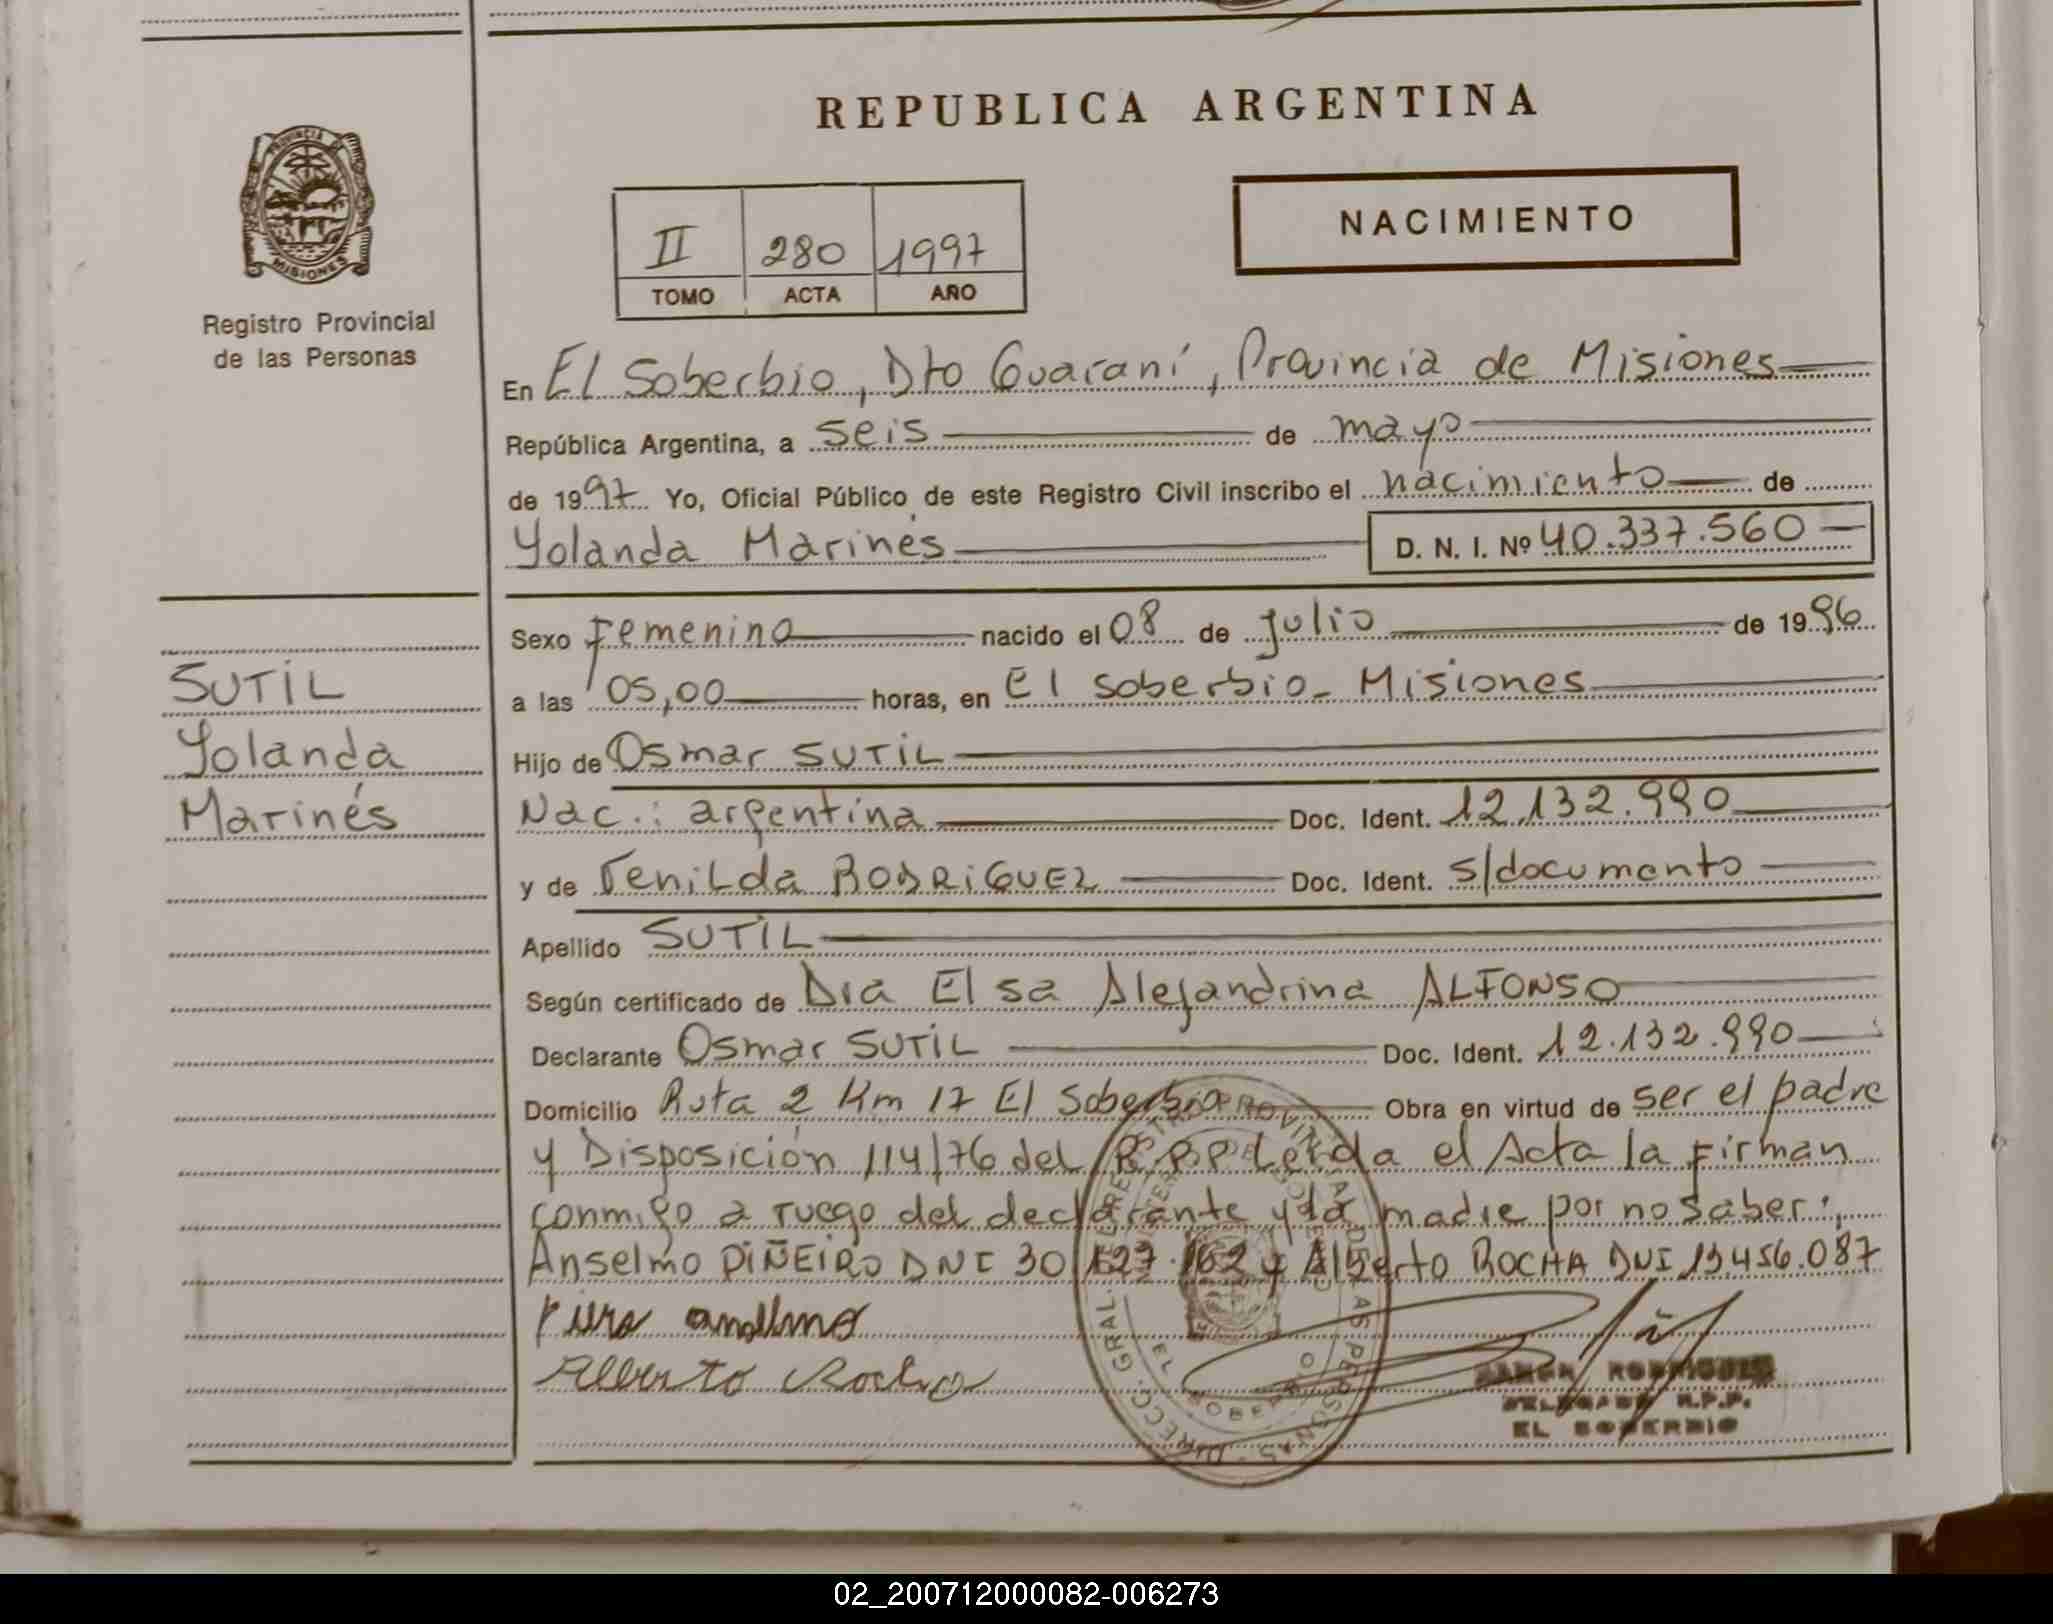 REPUBLICA ARGENTINA
PROVINCIA DE
MISIONES
Registro Provincial
de las Personas
II 280 1997
TOMO ACTA AÑO
NACIMIENTO
En El Soberbio, Dto Guaraní, Provincia de Misiones
República Argentina, a seis de mayo
de 1997 Yo, Oficial Público de este Registro Civil inscribo el nacimiento de
Yolanda Marinés D. N. I. Nº 40.337.560
Sexo Femenino nacido el 08 de julio de 1996
a las 05,00 horas, en El Soberbio - Misiones
Hijo de Osmar SUTIL
Nac.: argentina Doc. Ident. 12.132.990
y de Tenilda RODRIGUEZ Doc. Ident. s/documento
Apellido SUTIL
Según certificado de Dra Elsa Alejandrina ALFONSO
Declarante Osmar SUTIL Doc. Ident. 12.132.990
Domicilio Ruta 2 Km 17 El Soberbio Obra en virtud de ser el padre
y Disposición 114/76 del R.P.P. Leida el Acta la firman
conmigo a ruego del declarante y la madre por no saber:
Anselmo PIÑEIRO DNI 30.127.162 y Alberto ROCHA DNI 13.456.087
anselmo
Alberto Rocha
RAMON RODRIGUEZ
DELEGADO R.P.P.
EL SOBERBIO
SUTIL
Yolanda
Marinés
DIRECC. GRAL. DEL REGISTRO PROVINCIAL DE LAS PERSONAS
EL SOBERBIO
02_200712000082-006273